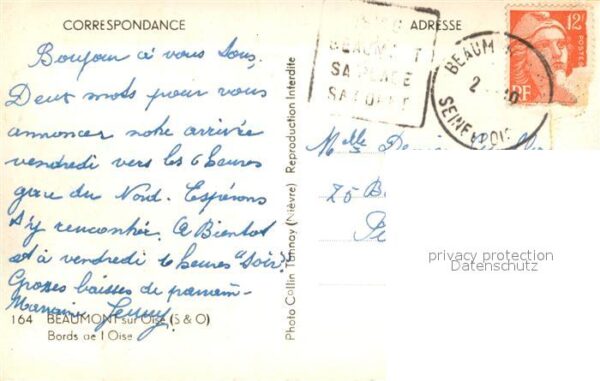 CORRESPONDANCE
Bonjour à vous tous,
Deux mots pour vous
annoncer notre arrivée
vendredi vers les 6 heures
gare du Nord. Espérons
s'y rencontrer. A Bientôt
et à vendredi 6 heures "soir"
Grosses baises de
Jenny
164 BEAUMONT sur Oise (S & O)
Bords de l'Oise
Photo Collin Tannay (Nièvre) Reproduction Interdite
ADRESSE
BEAUMONT
SA PLAGE
SA FORET
BEAUM
SEINE & OISE
12F
POSTES
RF
Melle
25 B
privacy protection
Datenschutz